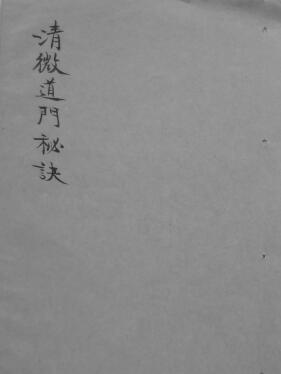 清微道門秘訣